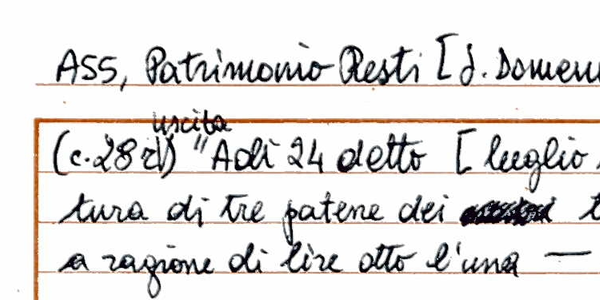 ASS, Patrimonio Resti [S. Domen
uscita
(c.28r) "Adì 24 detto [luglio
tura di tre patene dei
a ragione di lire otto l'una —